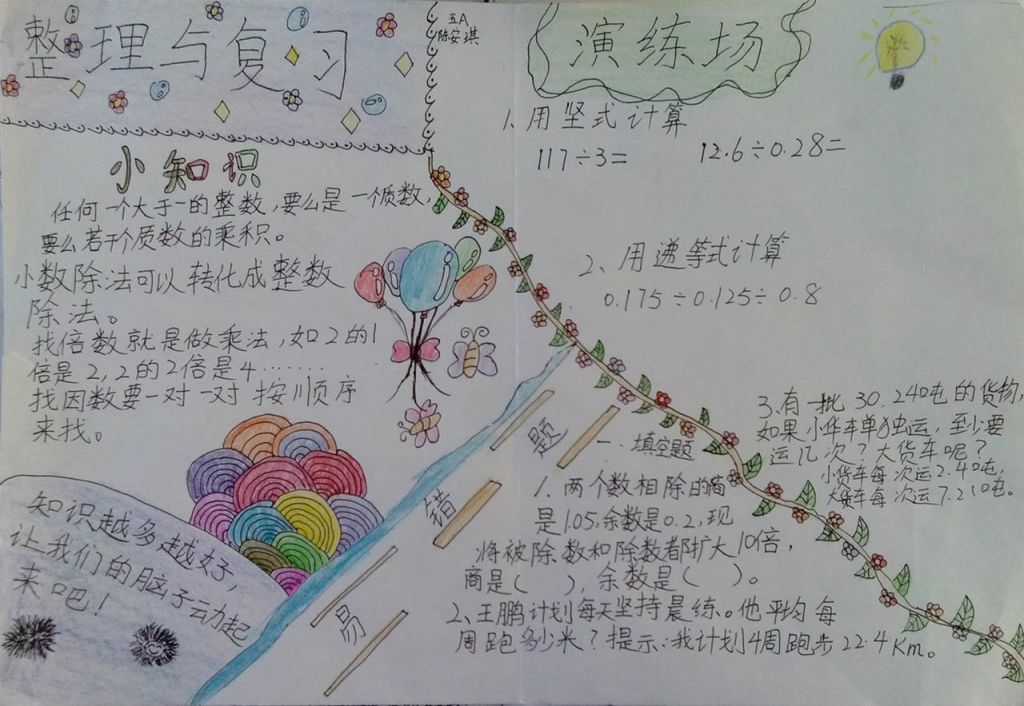 整理与复习
五A
陈安琪
小知识
任何一个大于一的整数,要么是一个质数,
要么若干个质数的乘积。
小数除法可以转化成整数
除法。
找倍数就是做乘法,如2的1
倍是2,2的2倍是4……
找因数要一对一对按顺序
来找。
知识越多越好,
让我们的脑子动起
来吧!
演练场
1、用竖式计算
117÷3= 12.6÷0.28=
2、用递等式计算
0.175÷0.125÷0.8
3、有一批30.24吨的货物,
如果小货车单独运,至少要
运几次?大货车呢?
小货车每次运2.4吨,
大货车每次运7.2吨。
易错题
一.填空题
1.两个数相除的商
是1.05,余数是0.2,现
将被除数和除数都扩大10倍,
商是( ),余数是( )。
2、王鹏计划每天坚持晨练。他平均每
周跑多少米?提示:我计划4周跑步22.4Km。